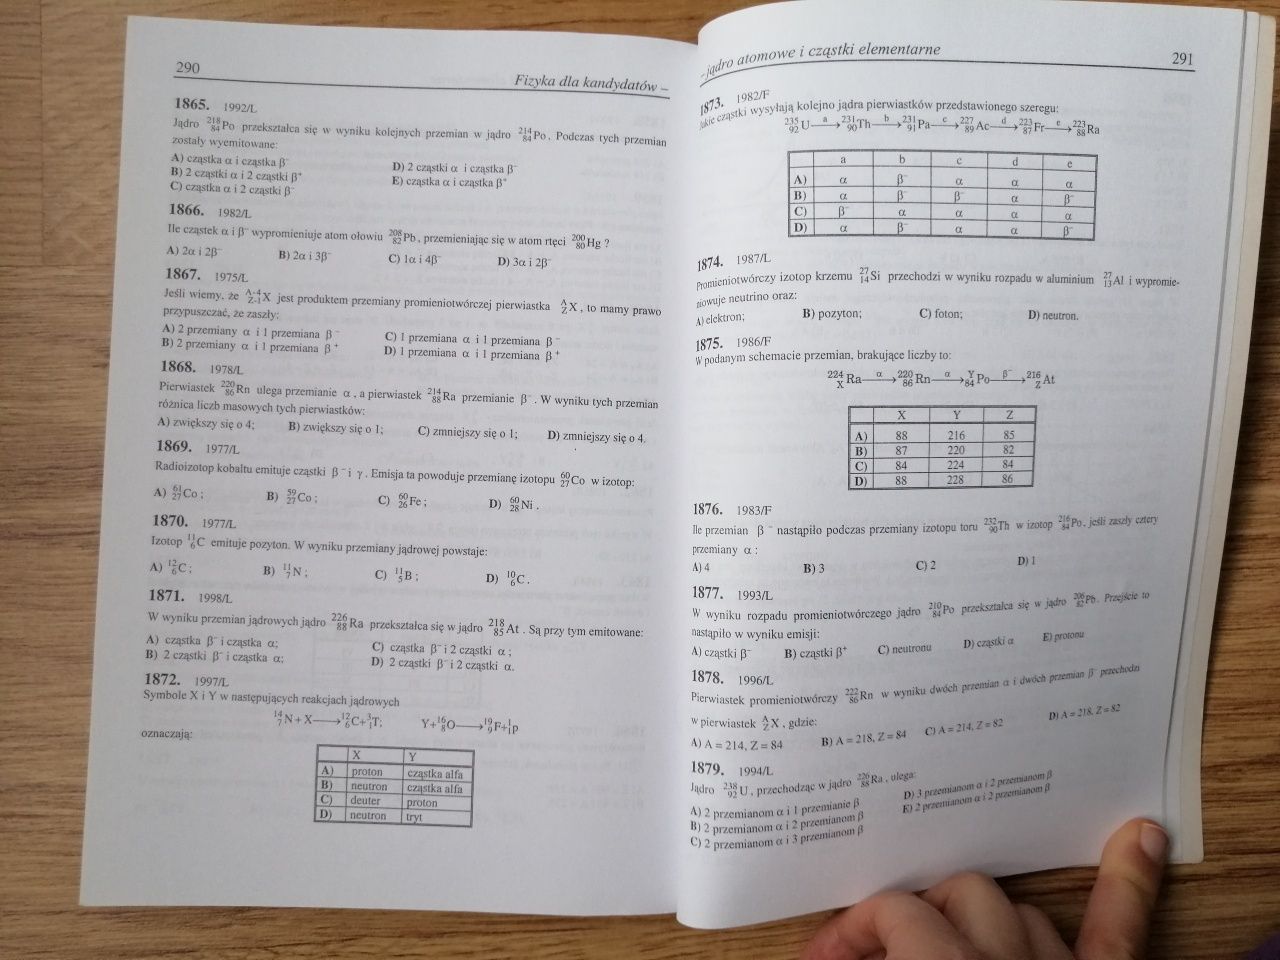 290
Fizyka dla kandydatów –
1865. 1992/L
Jądro ²¹⁸₈₄Po przekształca się w wyniku kolejnych przemian w jądro ²¹⁴₈₄Po. Podczas tych przemian
zostały wyemitowane:
A) cząstka α i cząstka β⁻
B) 2 cząstki α i 2 cząstki β⁺
C) cząstka α i 2 cząstki β⁻
D) 2 cząstki α i cząstka β⁻
E) cząstka α i cząstka β⁺
1866. 1982/L
Ile cząstek α i β⁻ wypromieniuje atom ołowiu ²⁰⁸₈₂Pb, przemieniając się w atom rtęci ²⁰⁰₈₀Hg ?
A) 2α i 2β⁻ B) 2α i 3β⁻ C) 1α i 4β⁻ D) 3α i 2β⁻
1867. 1975/L
Jeśli wiemy, że ᴬ⁻⁴Z-1X jest produktem przemiany promieniotwórczej pierwiastka ᴬZX, to mamy prawo
przypuszczać, że zaszły:
A) 2 przemiany α i 1 przemiana β⁻
B) 2 przemiany α i 1 przemiana β⁺
C) 1 przemiana α i 1 przemiana β⁻
D) 1 przemiana α i 1 przemiana β⁺
1868. 1978/L
Pierwiastek ²²⁰₈₆Rn ulega przemianie α, a pierwiastek ²¹⁴₈₈Ra przemianie β⁻. W wyniku tych przemian
różnica liczb masowych tych pierwiastków:
A) zwiększy się o 4; B) zwiększy się o 1; C) zmniejszy się o 1; D) zmniejszy się o 4.
1869. 1977/L
Radioizotop kobaltu emituje cząstki β⁻ i γ. Emisja ta powoduje przemianę izotopu ⁶⁰₂₇Co w izotop:
A) ⁶¹₂₇Co; B) ⁵⁹₂₇Co; C) ⁶⁰₂₆Fe; D) ⁶⁰₂₈Ni.
1870. 1977/L
Izotop ¹¹₆C emituje pozyton. W wyniku przemiany jądrowej powstaje:
A) ¹²₆C; B) ¹¹₇N; C) ¹¹₅B; D) ¹⁰₆C.
1871. 1998/L
W wyniku przemian jądrowych jądro ²²⁶₈₈Ra przekształca się w jądro ²¹⁸₈₅At. Są przy tym emitowane:
A) cząstka β⁻ i cząstka α;
B) 2 cząstki β⁻ i cząstka α;
C) cząstka β⁻ i 2 cząstki α;
D) 2 cząstki β⁻ i 2 cząstki α.
1872. 1997/L
Symbole X i Y w następujących reakcjach jądrowych
¹⁴₇N + X ⟶ ¹²₆C + ³₁T; Y + ¹⁶₈O ⟶ ¹⁹₉F + ¹₁p
oznaczają:
X Y
A) proton cząstka alfa
B) neutron cząstka alfa
C) deuter proton
D) neutron tryt
– jądro atomowe i cząstki elementarne
291
1873. 1982/F
Jakie cząstki wysyłają kolejno jądra pierwiastków przedstawionego szeregu:
²³⁵₉₂U –a→ ²³¹₉₀Th –b→ ²³¹₉₁Pa –c→ ²²⁷₈₉Ac –d→ ²²³₈₇Fr –e→ ²²³₈₈Ra
a b c d e
A) α β⁻ α α α
B) α β⁻ β⁻ α β⁻
C) β⁻ α α α α
D) α β⁻ α α β⁻
1874. 1987/L
Promieniotwórczy izotop krzemu ²⁷₁₄Si przechodzi w wyniku rozpadu w aluminium ²⁷₁₃Al i wypromie-
niowuje neutrino oraz:
A) elektron; B) pozyton; C) foton; D) neutron.
1875. 1986/F
W podanym schemacie przemian, brakujące liczby to:
²²⁴XRa –α→ ²²⁰₈₆Rn –α→ Y₈₄Po –β⁻→ ²¹⁶ZAt
X Y Z
A) 88 216 85
B) 87 220 82
C) 84 224 84
D) 88 228 86
1876. 1983/F
Ile przemian β⁻ nastąpiło podczas przemiany izotopu toru ²³²₉₀Th w izotop ²¹⁶₈₄Po, jeśli zaszły cztery
przemiany α:
A) 4 B) 3 C) 2 D) 1
1877. 1993/L
W wyniku rozpadu promieniotwórczego jądro ²¹⁰₈₄Po przekształca się w jądro ²⁰⁶₈₂Pb. Przejście to
nastąpiło w wyniku emisji:
A) cząstki β⁻ B) cząstki β⁺ C) neutronu D) cząstki α E) protonu
1878. 1996/L
Pierwiastek promieniotwórczy ²²²₈₆Rn w wyniku dwóch przemian α i dwóch przemian β⁻ przechodzi
w pierwiastek ᴬZX, gdzie:
A) A = 214, Z = 84 B) A = 218, Z = 84 C) A = 214, Z = 82 D) A = 218, Z = 82
1879. 1994/L
Jądro ²³⁸₉₂U, przechodząc w jądro ²²⁶₈₈Ra, ulega:
A) 2 przemianom α i 1 przemianie β
B) 2 przemianom α i 2 przemianom β
C) 2 przemianom α i 3 przemianom β
D) 3 przemianom α i 2 przemianom β
E) 2 przemianom α i 2 przemianom β